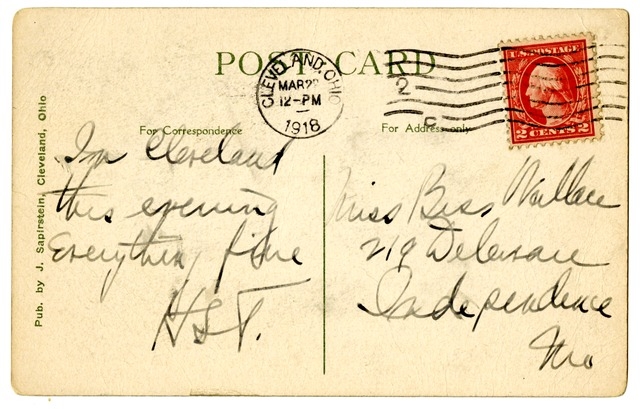 POST CARD
CLEVELAND, OHIO
MAR 22
12-PM
1918
2
C
U.S. POSTAGE
2 CENTS 2
For Correspondence
For Address only
Pub. by J. Sapirstein, Cleveland, Ohio
Im Cleveland
this evening
Everything fine
HST.
Miss Bess Wallace
219 Delaware
Independence
Mo